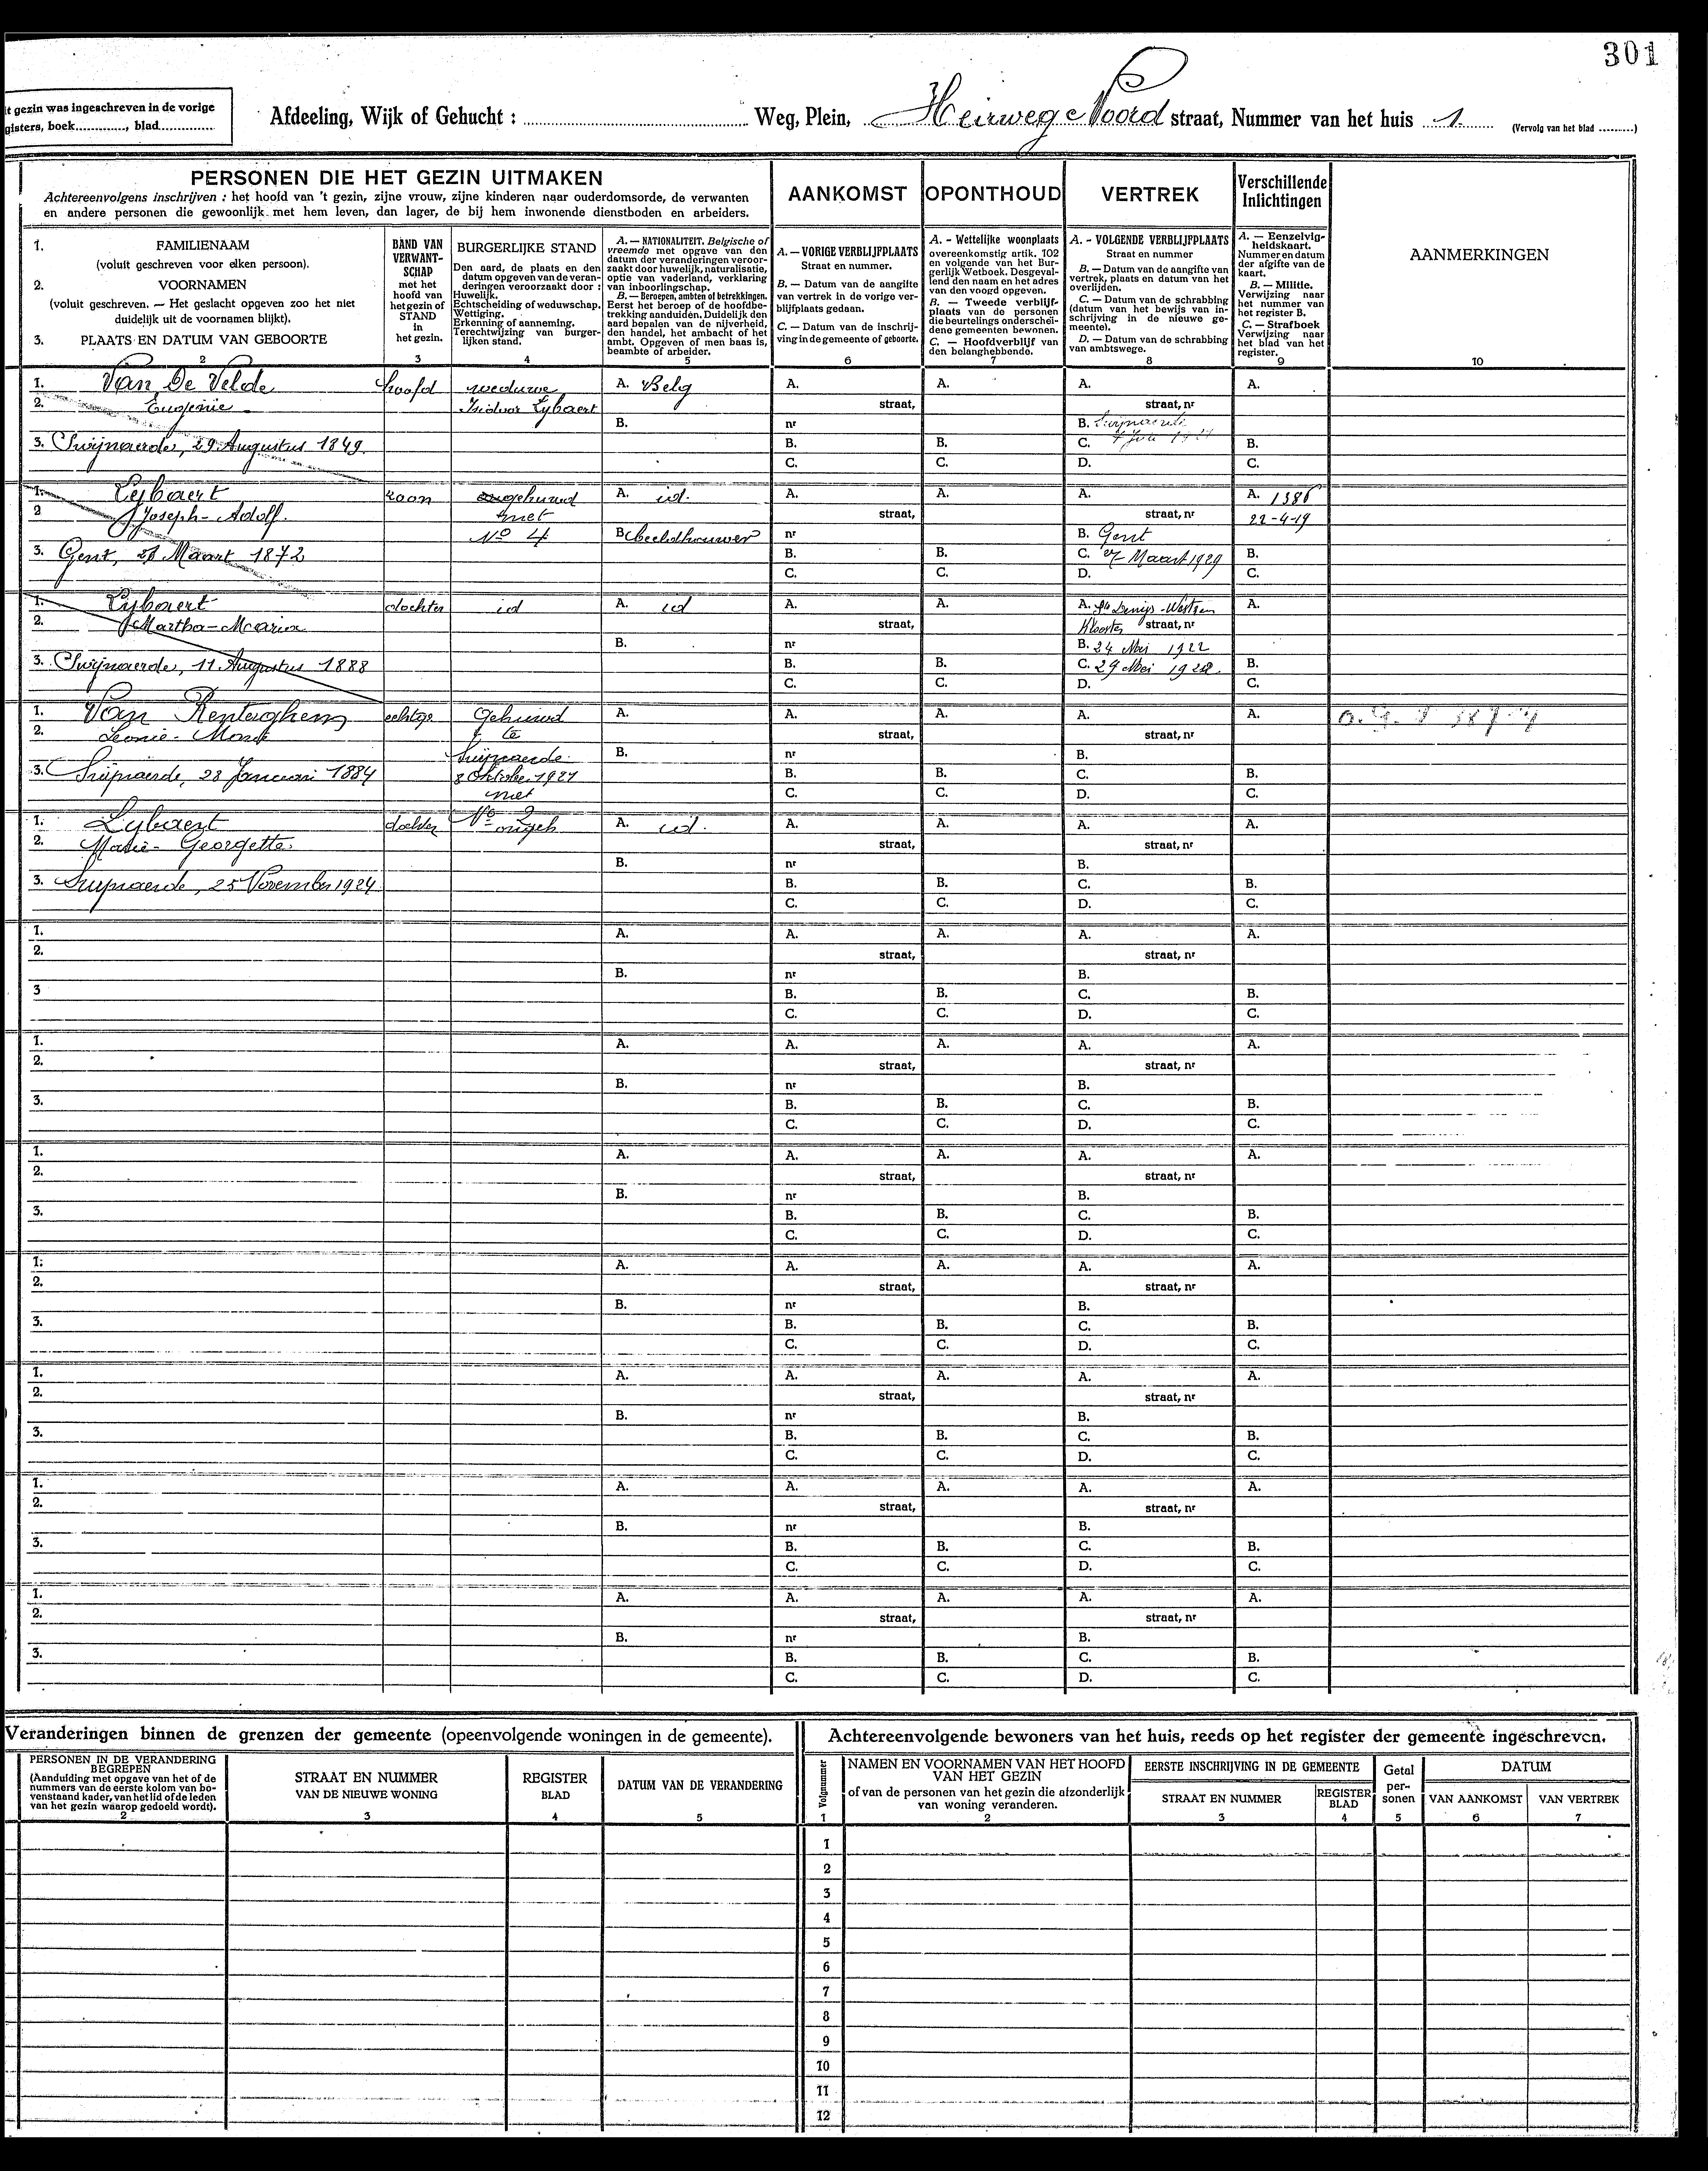 301
t gezin was ingeschreven in de vorige
gisters, boek............., blad..............
Afdeeling, Wijk of Gehucht : ........................ Weg, Plein, Heirweg Noord straat, Nummer van het huis 1. (Vervolg van het blad .........)
PERSONEN DIE HET GEZIN UITMAKEN
Achtereenvolgens inschrijven : het hoofd van 't gezin, zijne vrouw, zijne kinderen naar ouderdomsorde, de verwanten
en andere personen die gewoonlijk met hem leven, dan lager, de bij hem inwonende dienstboden en arbeiders.
AANKOMST
OPONTHOUD
VERTREK
Verschillende
Inlichtingen
1. FAMILIENAAM
(voluit geschreven voor elken persoon).
2. VOORNAMEN
(voluit geschreven. — Het geslacht opgeven zoo het niet
duidelijk uit de voornamen blijkt).
3. PLAATS EN DATUM VAN GEBOORTE
2
BAND VAN
VERWANT-
SCHAP
met het
hoofd van
het gezin of
STAND
in
het gezin.
3
BURGERLIJKE STAND
Den aard, de plaats en den
datum opgeven van de veran-
deringen veroorzaakt door :
Huwelijk.
Echtscheiding of weduwschap.
Wettiging.
Erkenning of aanneming.
Terechtwijzing van burger-
lijken stand.
4
A. — NATIONALITEIT. Belgische of
vreemde met opgave van den
datum der veranderingen veroor-
zaakt door huwelijk, naturalisatie,
optie van vaderland, verklaring
van inboorlingschap.
B. — Beroepen, ambten of betrekkingen.
Eerst het beroep of de hoofdbe-
trekking aanduiden. Duidelijk den
aard bepalen van de nijverheid,
den handel, het ambacht of het
ambt. Opgeven of men baas is,
beambte of arbeider.
5
A. — VORIGE VERBLIJFPLAATS
Straat en nummer.
B. — Datum van de aangifte
van vertrek in de vorige ver-
blijfplaats gedaan.
C. — Datum van de inschrij-
ving in de gemeente of geboorte.
6
A. - Wettelijke woonplaats
overeenkomstig artik. 102
en volgende van het Bur-
gerlijk Wetboek. Desgeval-
lend den naam en het adres
van den voogd opgeven.
B. — Tweede verblijf-
plaats van de personen
die beurtelings onderschei-
dene gemeenten bewonen.
C. — Hoofdverblijf van
den belanghebbende.
7
A. - VOLGENDE VERBLIJFPLAATS
Straat en nummer
B. — Datum van de aangifte van
vertrek, plaats en datum van het
overlijden.
C. — Datum van de schrabbing
(datum van het bewijs van in-
schrijving in de nieuwe ge-
meente).
D. — Datum van de schrabbing
van ambtswege.
8
A. — Eenzelvig-
heidskaart.
Nummer en datum
der afgifte van de
kaart.
B. — Militie.
Verwijzing naar
het nummer van
het register B.
C. — Strafboek
Verwijzing naar
het blad van het
register.
9
AANMERKINGEN
10
1. Van De Velde hoofd weduwe A. Belg A. A. A. A.
2. Eugenie Isidoor Lybaert straat, straat, nr
B. nr B. Swijnaerde
3. Swijnaerde, 29 Augustus 1849. B. B. C. B.
C. C. D. C.
1. Lybaert zoon ongehuwd A. id. A. A. A. A. 1386
2 Joseph-Adolf. met straat, straat, nr 22-4-19
No 4 B beeldhouwer nr B. Gent
3. Gent, Maart 1872 B. B. C. 27 Maart 1929 B.
C. C. D. C.
1. Lybaert dochter id A. id A. A. A. St Denijs-Westrem A.
2. Martha-Maria straat, Klooster straat, nr
B. nr B. 24 Mei 1922
3. Swijnaerde, 11 Augustus 1888 B. B. C. 29 Mei 1922 B.
C. C. D. C.
1. Van Renterghem echtge Gehuwd A. A. A. A. A.
2. Leonie- te straat, straat, nr
Swijnaerde B. nr B.
3. Swijnaerde, 28 Januari 1884 8 October 1921 B. B. C. B.
met C. C. D. C.
1. Lybaert dochter No 2 ongeh A. id. A. A. A. A.
2. Marie- Georgette straat, straat, nr
B. nr B.
3. Swijnaerde, 25 November 1924 B. B. C. B.
C. C. D. C.
1. A. A. A. A. A.
2. straat, straat, nr
B. nr B.
3 B. B. C. B.
C. C. D. C.
1. A. A. A. A. A.
2. straat, straat, nr
B. nr B.
3. B. B. C. B.
C. C. D. C.
1. A. A. A. A. A.
2. straat, straat, nr
B. nr B.
3. B. B. C. B.
C. C. D. C.
1. A. A. A. A. A.
2. straat, straat, nr
B. nr B.
3. B. B. C. B.
C. C. D. C.
1. A. A. A. A. A.
2. straat, straat, nr
B. nr B.
3. B. B. C. B.
C. C. D. C.
1. A. A. A. A. A.
2. straat, straat, nr
B. nr B.
3. B. B. C. B.
C. C. D. C.
1. A. A. A. A. A.
2. straat, straat, nr
B. nr B.
3. B. B. C. B.
C. C. D. C.
Veranderingen binnen de grenzen der gemeente (opeenvolgende woningen in de gemeente).
PERSONEN IN DE VERANDERING
BEGREPEN
(Aanduiding met opgave van het of de
nummers van de eerste kolom van bo-
venstaand kader, van het lid of de leden
van het gezin waarop gedoeld wordt).
2
STRAAT EN NUMMER
VAN DE NIEUWE WONING
3
REGISTER
BLAD
4
DATUM VAN DE VERANDERING
5
Achtereenvolgende bewoners van het huis, reeds op het register der gemeente ingeschreven.
Volgnummer
1
NAMEN EN VOORNAMEN VAN HET HOOFD
VAN HET GEZIN
of van de personen van het gezin die afzonderlijk
van woning veranderen.
2
EERSTE INSCHRIJVING IN DE GEMEENTE
STRAAT EN NUMMER
3
REGISTER
BLAD
4
Getal
per-
sonen
5
DATUM
VAN AANKOMST
6
VAN VERTREK
7
1
2
3
4
5
6
7
8
9
10
11
12